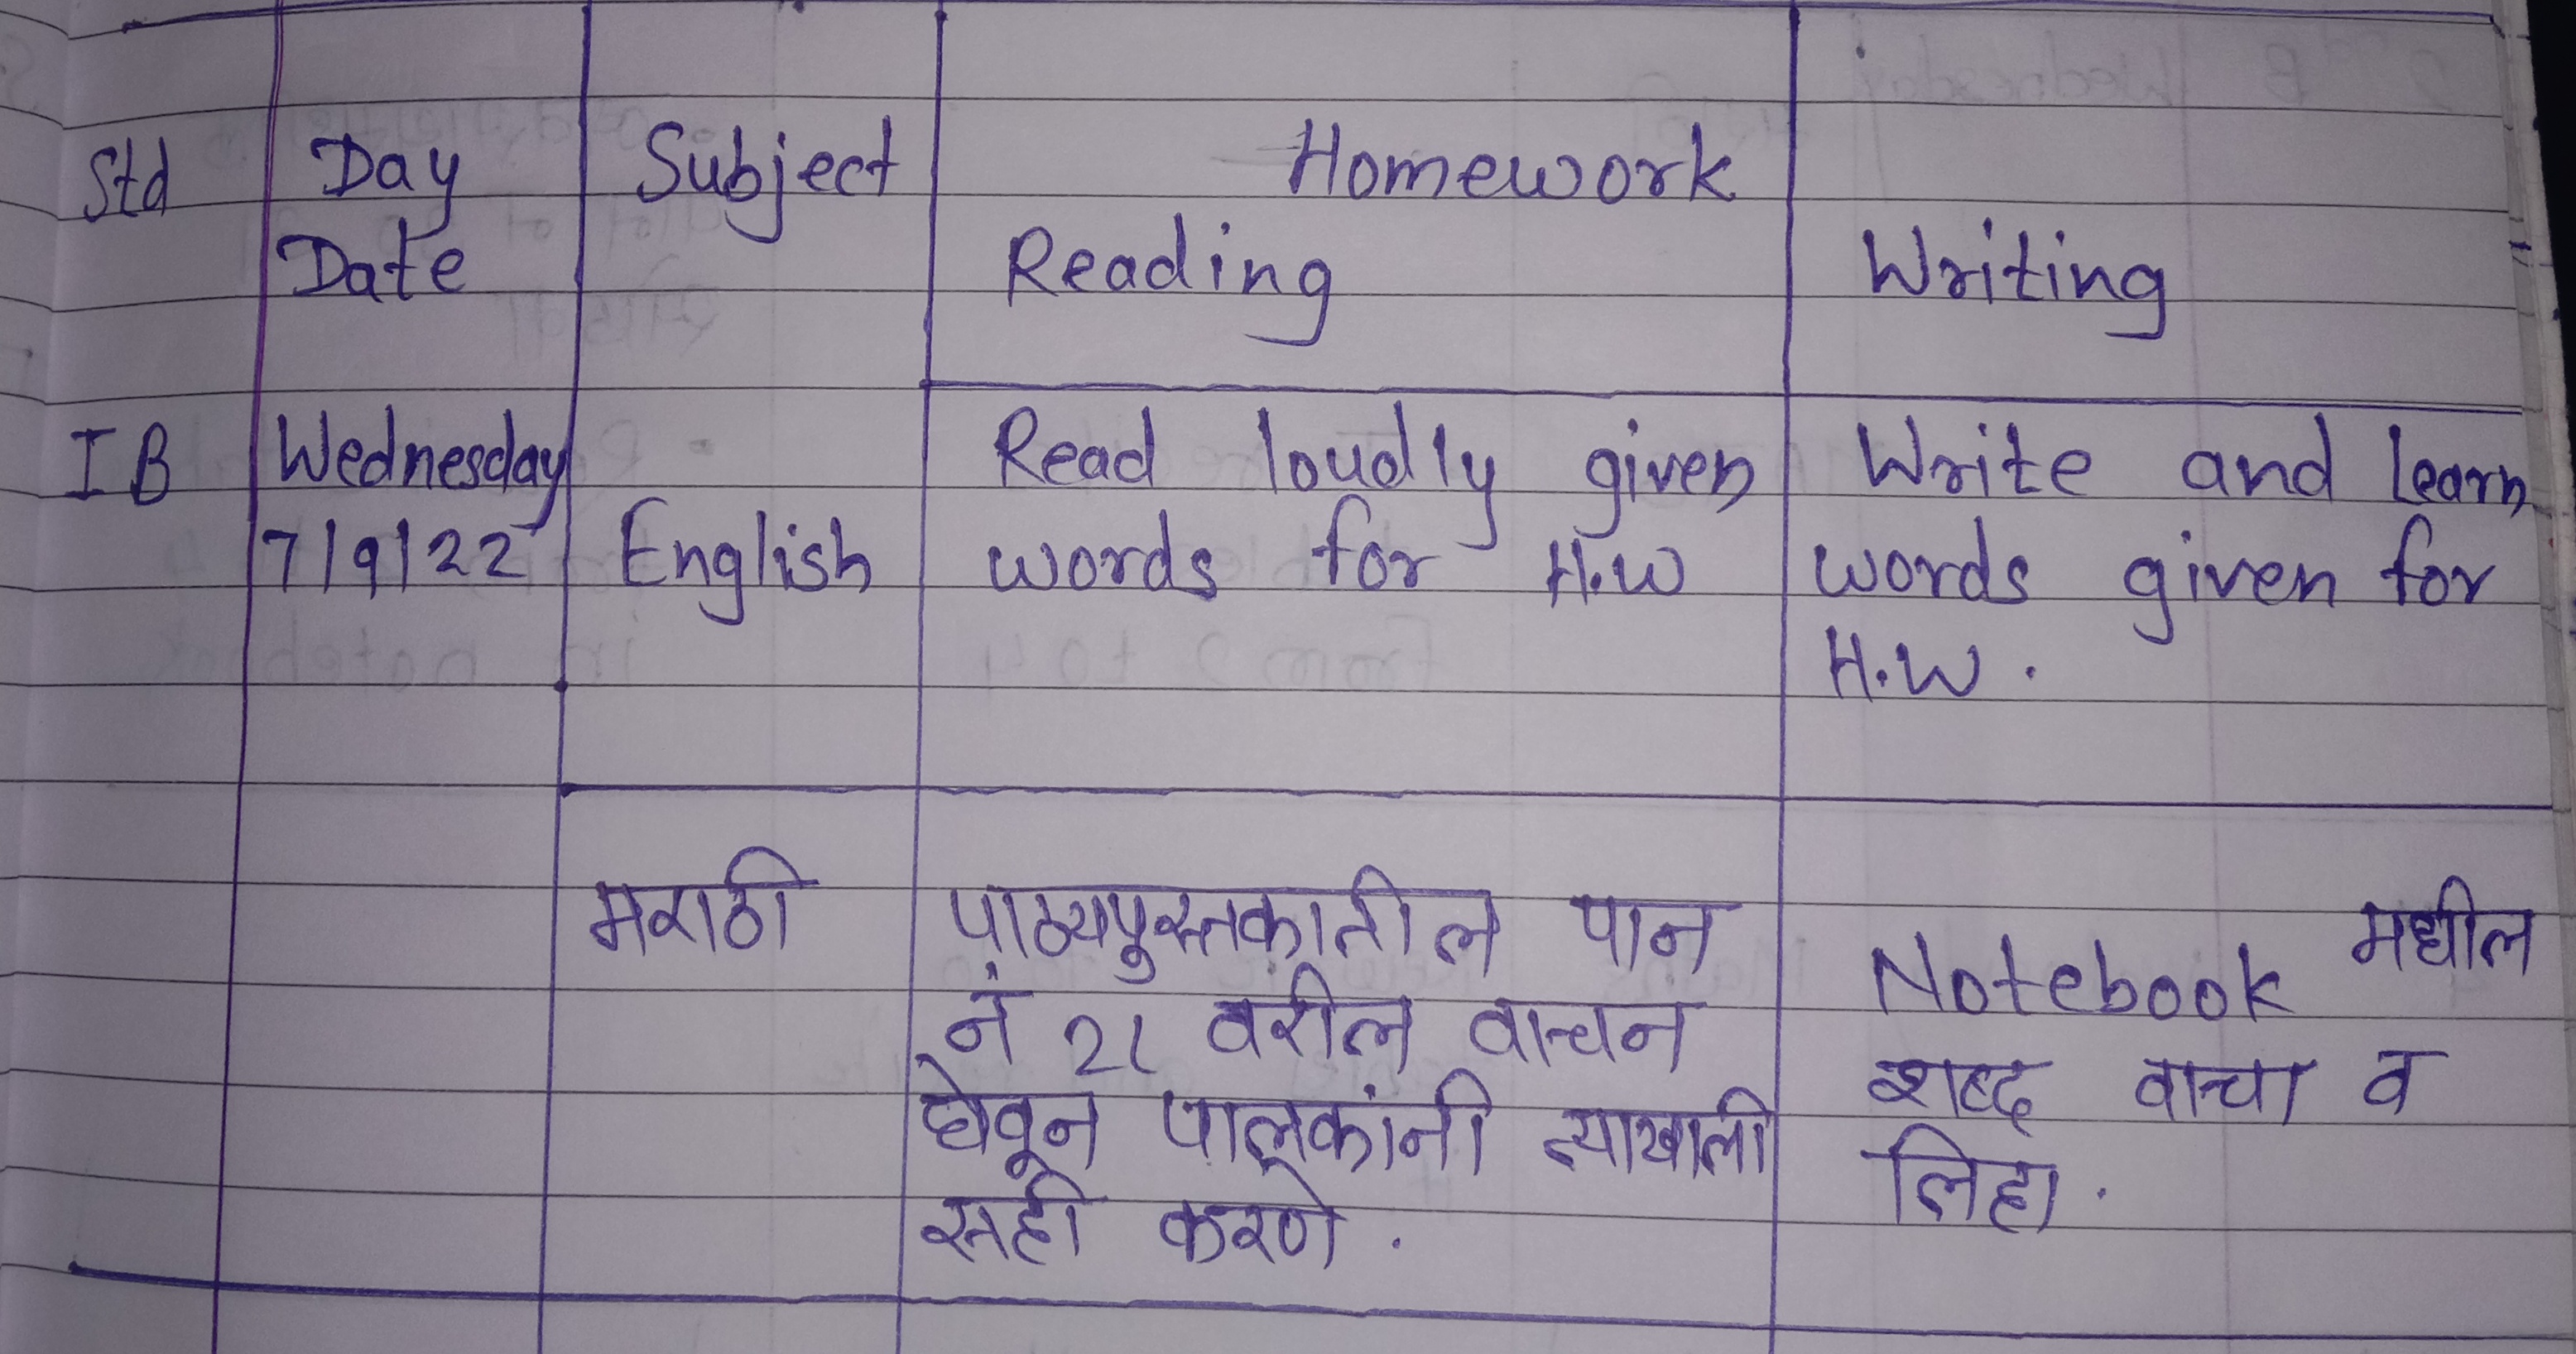 Std Day Subject Homework
Date Reading Writing
I B Wednesday Read loudly given Write and learn
7/9/22 English words for H.W words given for
H.W.
मराठी पाठ्यपुस्तकातील पान Notebook मधील
नं 21 वरील वाचन शब्द वाचा व
घेवून पालकांनी त्याखाली लिहा.
सही करणे.